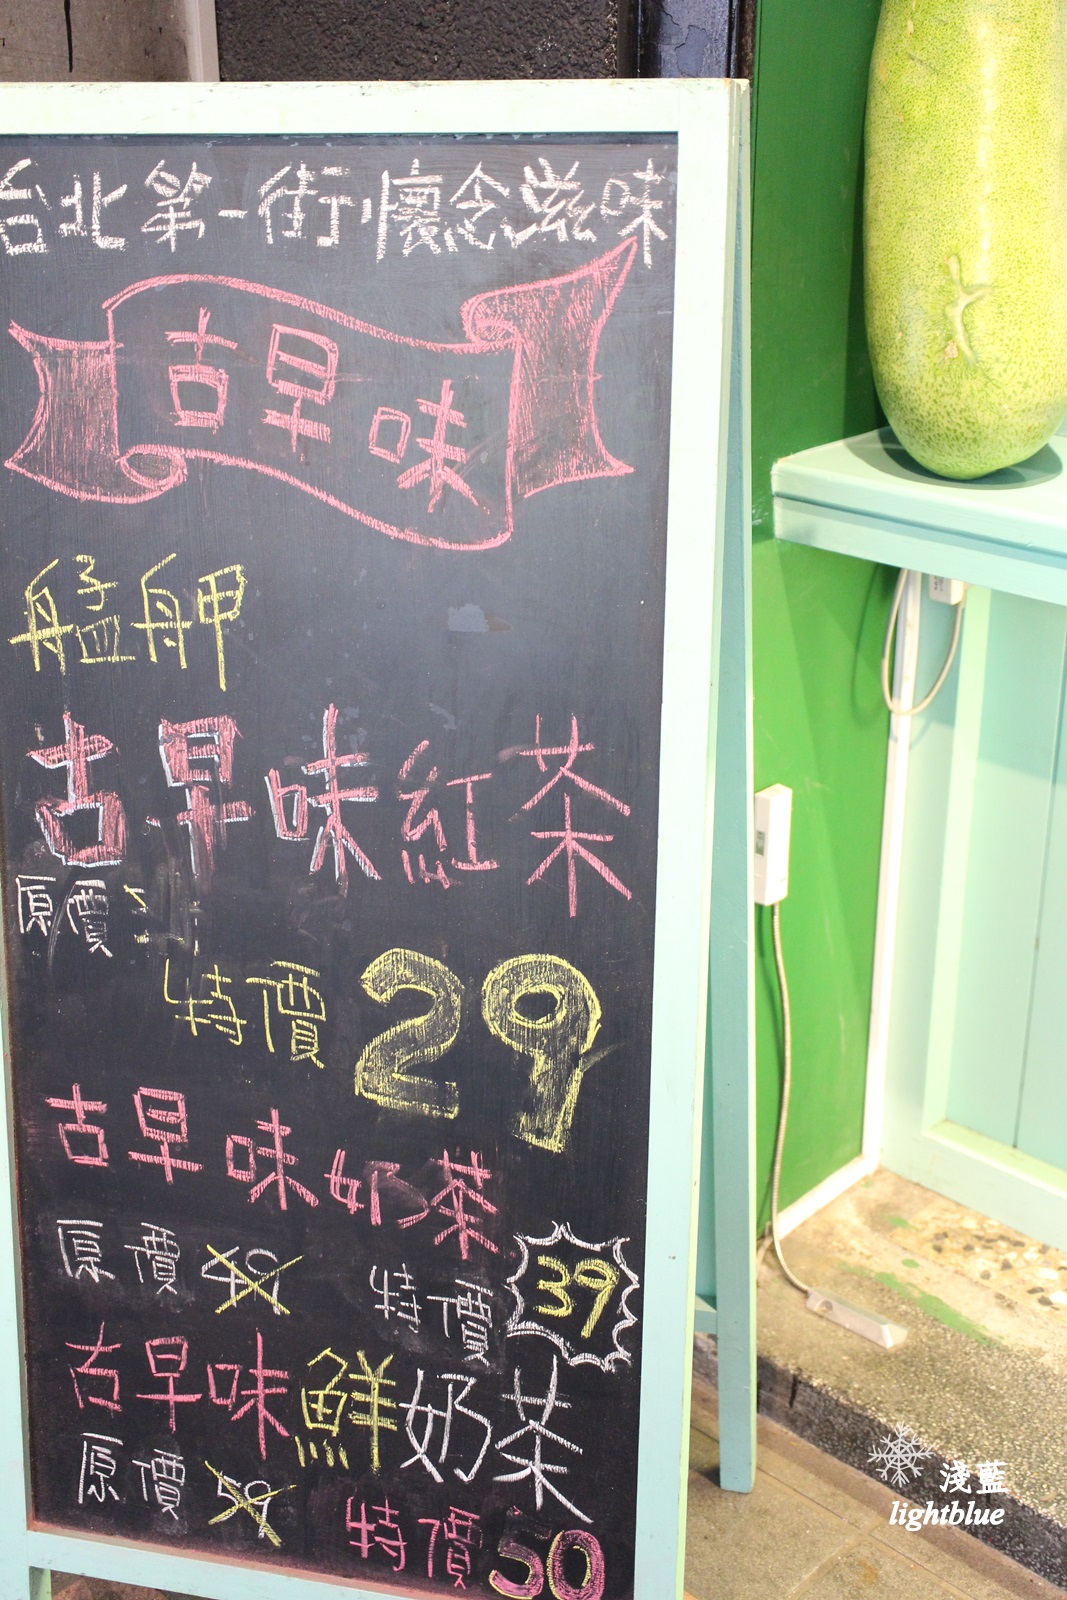 台北第一街懷念滋味
古早味
艋舺
古早味紅茶
原價
特價 29
古早味奶茶
原價 49 特價 39
古早味鮮奶茶
原價 59 特價 50
淺藍
lightblue